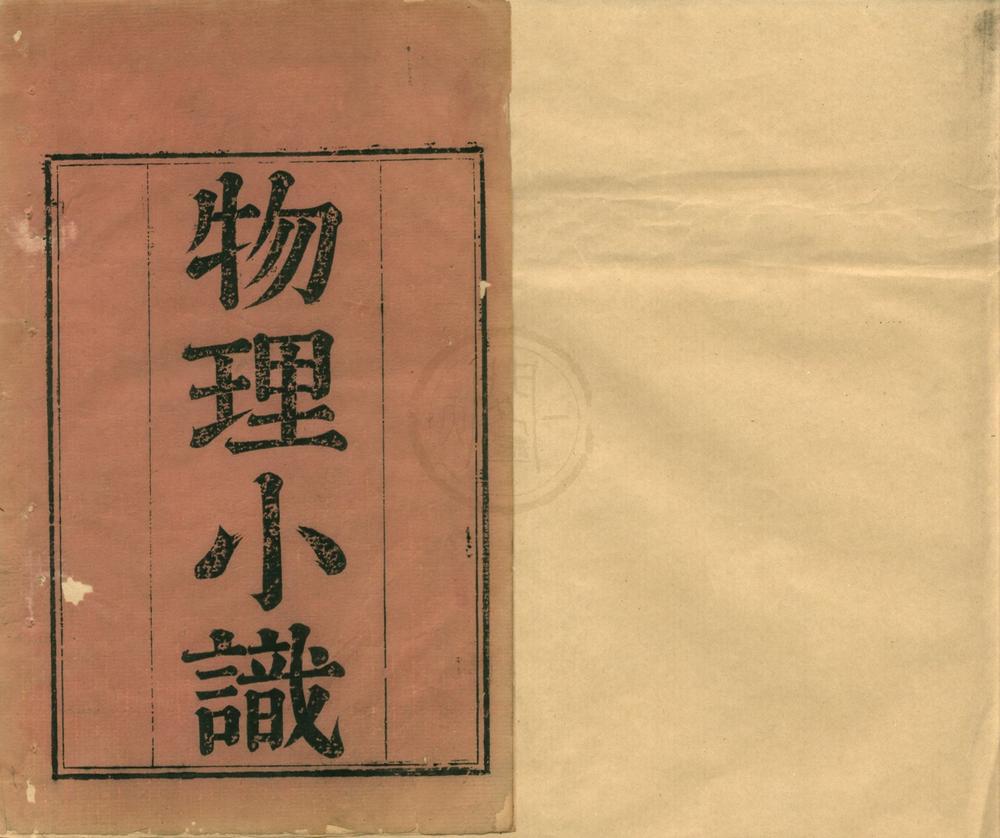 物理小識